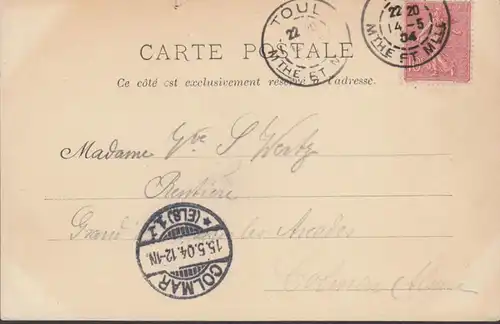 TOUL
22
MTHE ET M
22 20
14 - 5
04
MTHE ET MLLE
CARTE POSTALE
Ce côté est exclusivement réservé à l'adresse.
Madame Vve S Wertz
Rentière
Grand'    les Arcades
Colmar Alsace
COLMAR
15.5.04.12-1N.
* (ELS) 1 *